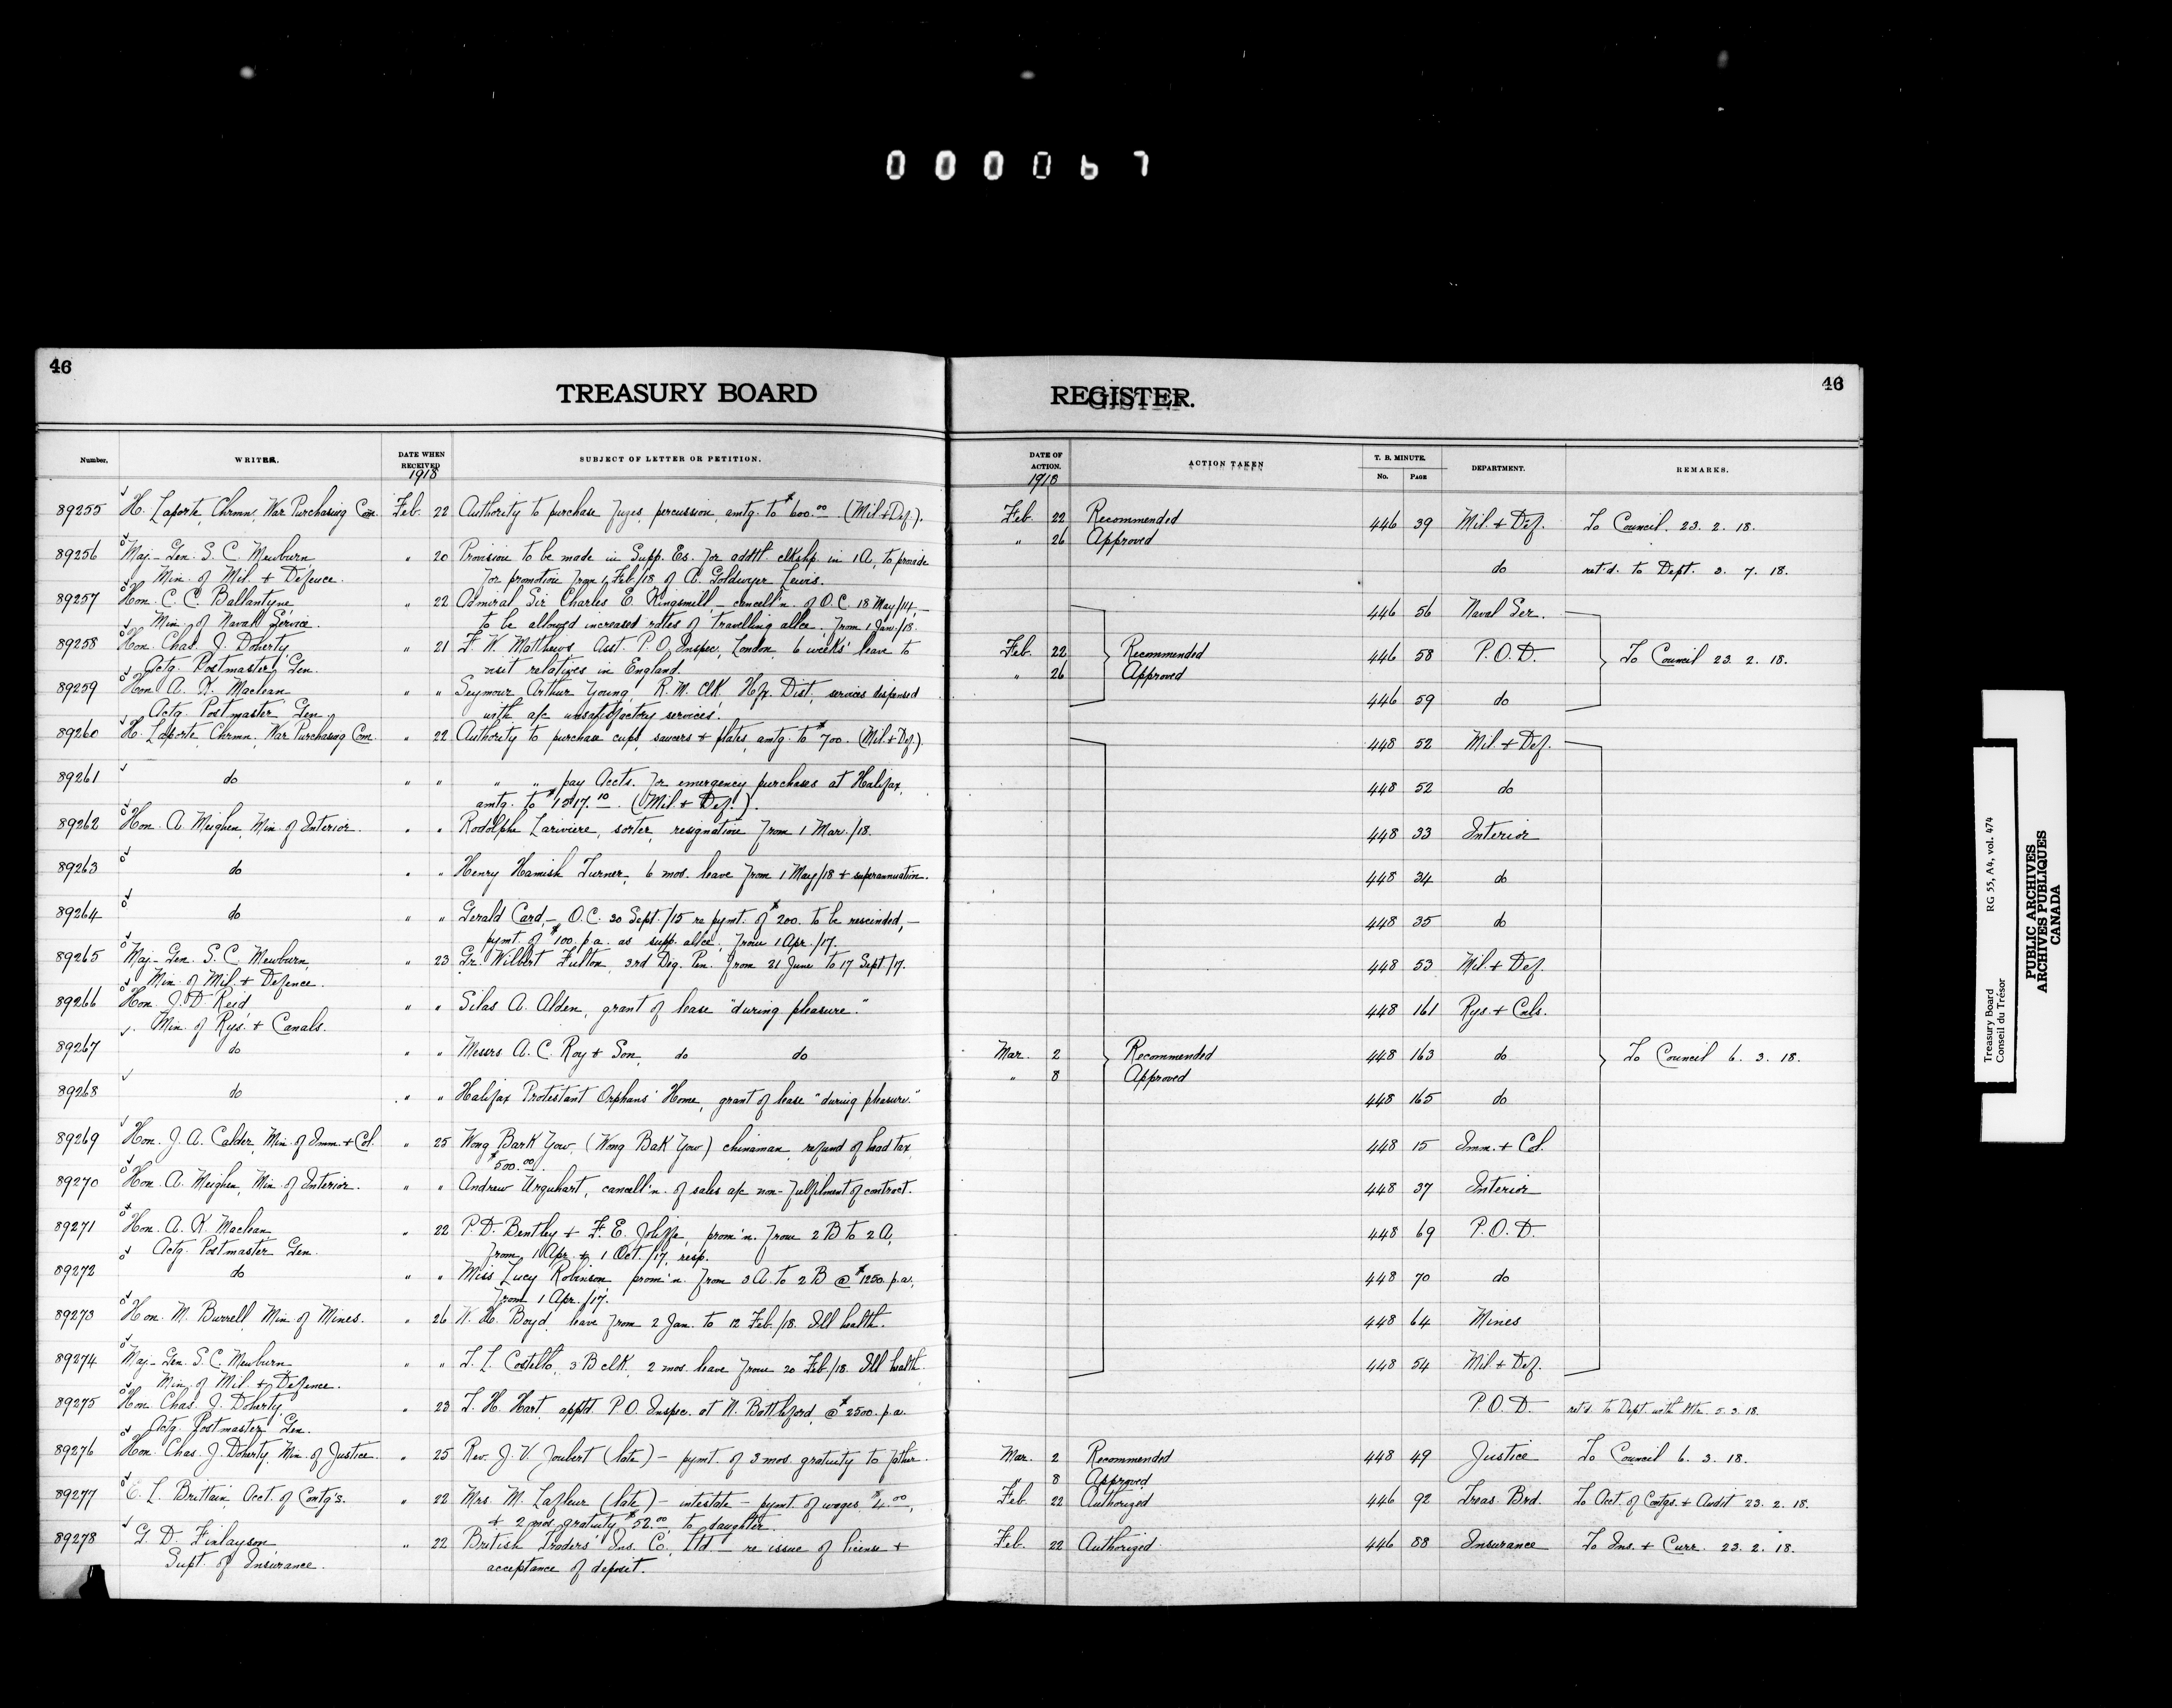 000067
46
TREASURY BOARD
REGISTER.
46
Number.
WRITER.
DATE WHEN RECEIVED
1918
SUBJECT OF LETTER OR PETITION.
DATE OF ACTION.
1918
ACTION TAKEN
T. B. MINUTE.
No.
PAGE
DEPARTMENT.
REMARKS.
89255 H. Laporte, Chrmn. War Purchasing Com. Feb. 22 Authority to purchase fuzes, percussion, amtg. to $600.00 (Mil. & Def.). Feb. 22 Recommended 446 39 Mil. + Def. To Council. 23. 2. 18.
" 26 Approved
89256 Maj-Gen. S. C. Mewburn " 20 Provision to be made in Supp. Es. for addtl. clkshp. in 1A, to provide do ret'd. to Dept. 3. 7. 18.
Min. of Mil. + Defence. for promotion from 1 Feb./18 of A. Goldwyer Lewis.
89257 Hon. C. C. Ballantyne " 22 Admiral Sir Charles E. Kingsmill, - cancell'n. of O.C. 18 May/14, - 446 56 Naval Ser.
Min. of Naval Service. to be allowed increased rates of travelling allce. from 1 Jan./18.
89258 Hon. Chas. J. Doherty " 21 F. W. Matthews, Asst. P.O. Inspec., London, 6 weeks' leave to Feb. 22 Recommended 446 58 P.O.D. To Council 23. 2. 18.
Actg. Postmaster Gen. visit relatives in England. " 26 Approved
89259 Hon. A. K. Maclean " " Seymour Arthur Young, R.M. clk. Hfx. Dist., services dispensed 446 59 do
Actg. Postmaster Gen. with a/c unsatisfactory services.
89260 H. Laporte, Chrmn. War Purchasing Com. " 22 Authority to purchase cups, saucers + plates, amtg. to $700. (Mil. + Def.). 448 52 Mil. + Def.
89261 do " " " " pay Accts. for emergency purchases at Halifax, 448 52 do
amtg. to $1217.10. (Mil. + Def.).
89262 Hon. A. Meighen, Min. of Interior. " " Rodolphe Lariviere, sorter, resignation from 1 Mar./18. 448 33 Interior
89263 do " " Henry Hamish Turner, 6 mos. leave from 1 May/18 + superannuation. 448 34 do
89264 do " " Gerald Card, - O.C. 30 Sept./15 re pymt. of $200. to be rescinded, - 448 35 do
pymt. of $100. p.a. as supp. allce. from 1 Apr./17.
89265 Maj-Gen. S. C. Mewburn " 23 Gr. Wilbert Fulton, 3rd Deg. Pen. from 21 June to 17 Sept./17. 448 53 Mil. + Def.
Min. of Mil. + Defence.
89266 Hon. J. D. Reid " " Silas A. Alden, grant of lease "during pleasure". 448 161 Rys. + Cnls.
Min. of Rys. + Canals.
89267 do " " Messrs A. C. Roy + Son, do do Mar. 2 Recommended 448 163 do To Council 6. 3. 18.
" 8 Approved
89268 do " " Halifax Protestant Orphans' Home, grant of lease "during pleasure." 448 165 do
89269 Hon. J. A. Calder, Min. of Imm. + Col. " 25 Wong Bark Yow, (Wong Bak Yow) chinaman, refund of head tax, 448 15 Imm. + Col.
$500.00.
89270 Hon. A. Meighen, Min. of Interior. " " Andrew Urquhart, cancell'n. of sales a/c non-fulfilment of contract. 448 37 Interior
89271 Hon. A. K. Maclean " 22 P. D. Bentley + F. E. Jolliffe, prom'n. from 2B to 2A, 448 69 P.O.D.
Actg. Postmaster Gen. from 1 Apr. + 1 Oct./17, resp.
89272 do " " Miss Lucy Robinson prom'n. from 3A to 2B @ $1250. p.a. 448 70 do
from 1 Apr./17.
89273 Hon. M. Burrell, Min. of Mines. " 26 W. H. Boyd, leave from 2 Jan. to 12 Feb./18. Ill health. 448 64 Mines
89274 Maj-Gen. S. C. Mewburn " " L. L. Costello, 3B clk. 2 mos. leave from 20 Feb./18. Ill health. 448 54 Mil. + Def.
Min. of Mil. + Defence.
89275 Hon. Chas. J. Doherty " 23 T. H. Hart, apptd P.O. Inspec. at N. Battleford @ $2500. p.a. P.O.D. ret'd. to Dept. with 5. 3. 18.
Actg. Postmaster Gen.
89276 Hon. Chas. J. Doherty, Min. of Justice. " 25 Rev. J. V. Joubert (late) - pymt. of 3 mos. gratuity to father. Mar. 2 Recommended 448 49 Justice To Council 6. 3. 18.
" 8 Approved
89277 E. L. Brittain, Acct. of Contg's. " 22 Mrs. M. Lafleur (late) - intestate - pymt. of wages $4.00, Feb. 22 Authorized 446 92 Treas. Brd. To Acct. of Contgs. + Audit 23. 2. 18.
+ 2 mos. gratuity $52.00 to daughter.
89278 G. D. Finlayson, " 22 British Traders' Ins. Co. Ltd. - re issue of license + Feb. 22 Authorized 446 88 Insurance To Ins. + Curr. 23. 2. 18.
Supt. of Insurance. acceptance of deposit.
Treasury Board
Conseil du Trésor
RG 55, A4, vol. 474
PUBLIC ARCHIVES
ARCHIVES PUBLIQUES
CANADA